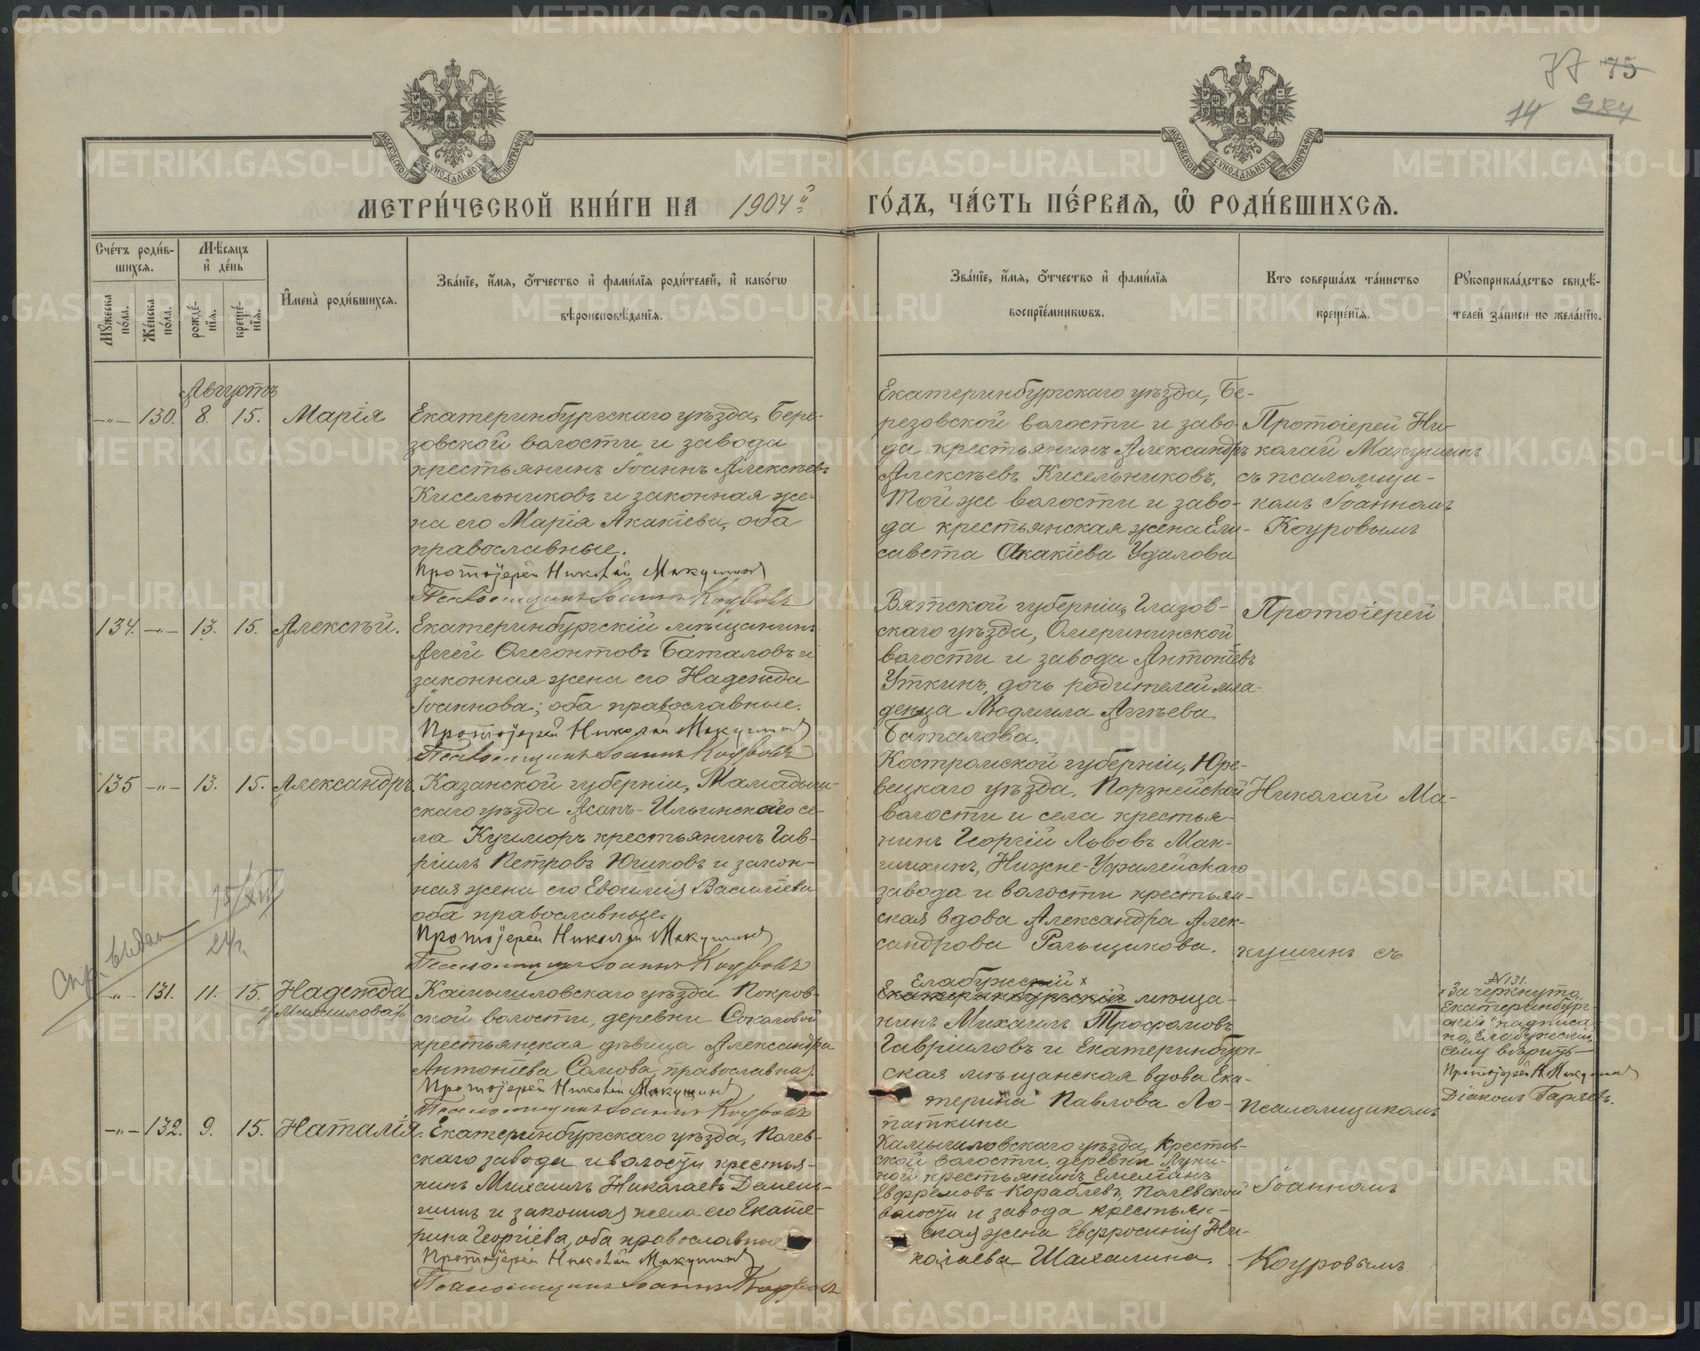 77 75
14 984
МОСКОВСКОЙ СѴНОДАЛЬНОЙ ТИПОГРАФІИ
МОСКОВСКОЙ СѴНОДАЛЬНОЙ ТИПОГРАФІИ
МЕТРИ́ЧЕСКОЙ КНИ́ГИ НА 1904й ГО́ДЪ, ЧА́СТЬ ПЕ́РВАѦ, Ѡ҆ РОДИ́ВШИХСѦ.
Сче́тъ роди́в-
шихся.
Мѣ́сяцъ
и҆ де́нь
Мꙋ́жеска по́ла.
Же́нска по́ла.
рожде́-
нїя.
креще́-
нїя.
И҆мена̀ роди́вшихся.
Зва́нїе, и҆́мя, ѻ҆́тчество и҆ фами́лїя роди́телей, и҆ како́гѡ
вѣроисповѣ́данїя.
Зва́нїе, и҆́мя, ѻ҆́тчество и҆ фами́лїя
воспрїе́мникѡвъ.
Кто̀ соверша́лъ та́инство
креще́нїя.
Рꙋкоприкла́дство свидѣ́-
телей за́писи по жела́нїю.
Августъ
-"- 130. 8. 15. Марія
Екатеринбургскаго уѣзда, Бере-
зовской волости и завода
крестьянинъ Іоаннъ Алексѣевъ
Кисельниковъ и законная же-
на его Марія Акакіева, оба
православные.
Протоіерей Николай Макушинъ
Псаломщикъ Іоаннъ Коуровъ
Екатеринбургскаго уѣзда, Бе-
резовской волости и заво-
да крестьянинъ Александръ
Алексѣевъ Кисельниковъ,
Той же волости и заво-
да крестьянская жена Ели-
савета Акакіева Удалова
Протоіерей Ни-
колай Макушинъ
съ псаломщи-
комъ Іоанномъ
Коуровымъ
134. -"- 13. 15. Алексѣй.
Екатеринбургскій мѣщанинъ
Аггей Олегонтовъ Баталовъ и
законная жена его Надежда
Іоаннова; оба православные.
Протоіерей Николай Макушинъ
Псаломщикъ Іоаннъ Коуровъ
Вятской губерніи, Глазов-
скаго уѣзда, Омеринской
волости и завода Антоніевъ
Уткинъ, дочь родителей мла-
денца Людмила Аггѣева
Баталова.
Протоіерей
135 -"- 13. 15. Александръ
Казанской губерніи, Мамадыш-
скаго уѣзда Асанъ-Ильинскаго се-
ла Кушморъ крестьянинъ Гав-
ріилъ Петровъ Юшковъ и закон-
ная жена его Евѳимія Василіева
оба православные.
Протоіерей Николай Макушинъ
Псаломщикъ Іоаннъ Коуровъ
Костромской губерніи, Юрь-
вецкаго уѣзда, Порзнейской
волости и села крестья-
нинъ Георгій Львовъ Мак-
шихинъ, Нижне-Уфалейскаго
завода и волости крестьян-
ская вдова Александра Алек-
сандрова Рольщикова.
Николай Ма-
кушинъ съ
Спр. выдан
15/XII
24 г.
-"- 131. 11. 15. Надежда
(Михаилова).
Камышловскаго уѣзда Покров-
ской волости, деревни Соколовой
крестьянская дѣвица Александра
Антоніева Сомова православная.
Протоіерей Николай Макушинъ
Псаломщикъ Іоаннъ Коуровъ
Елабужскій х
Екатеринбургскій мѣща-
нинъ Михаилъ Трофимовъ
Гавріиловъ и Екатеринбург-
ская мѣщанская вдова Ека-
терина Павлова Ло-
паткина
Псаломщикомъ
№ 131.
Зачеркнуто
Екатеринбург-
скій надписа-
но, Елабужскій
сему вѣрить
Протоіерей Н. Макушинъ
Діаконъ Гаряевъ.
-"- 132. 9. 15. Наталія.
Екатеринбургскаго уѣзда, Полев-
скаго завода и волости крестья-
нинъ Михаилъ Николаевъ Демень-
шинъ и законная жена его Екате-
рина Георгіева, оба православные
Протоіерей Николай Макушинъ
Псаломщикъ Іоаннъ Коуровъ
Камышловскаго уѣзда, Крестов-
ской волости, деревни
крестьянинъ Емеліанъ
Евфремовъ Кораблевъ, Полевской
волости и завода крестьян-
ская жена Евфросинія Ни-
колаева Шахалина.
Іоанномъ
Коуровымъ